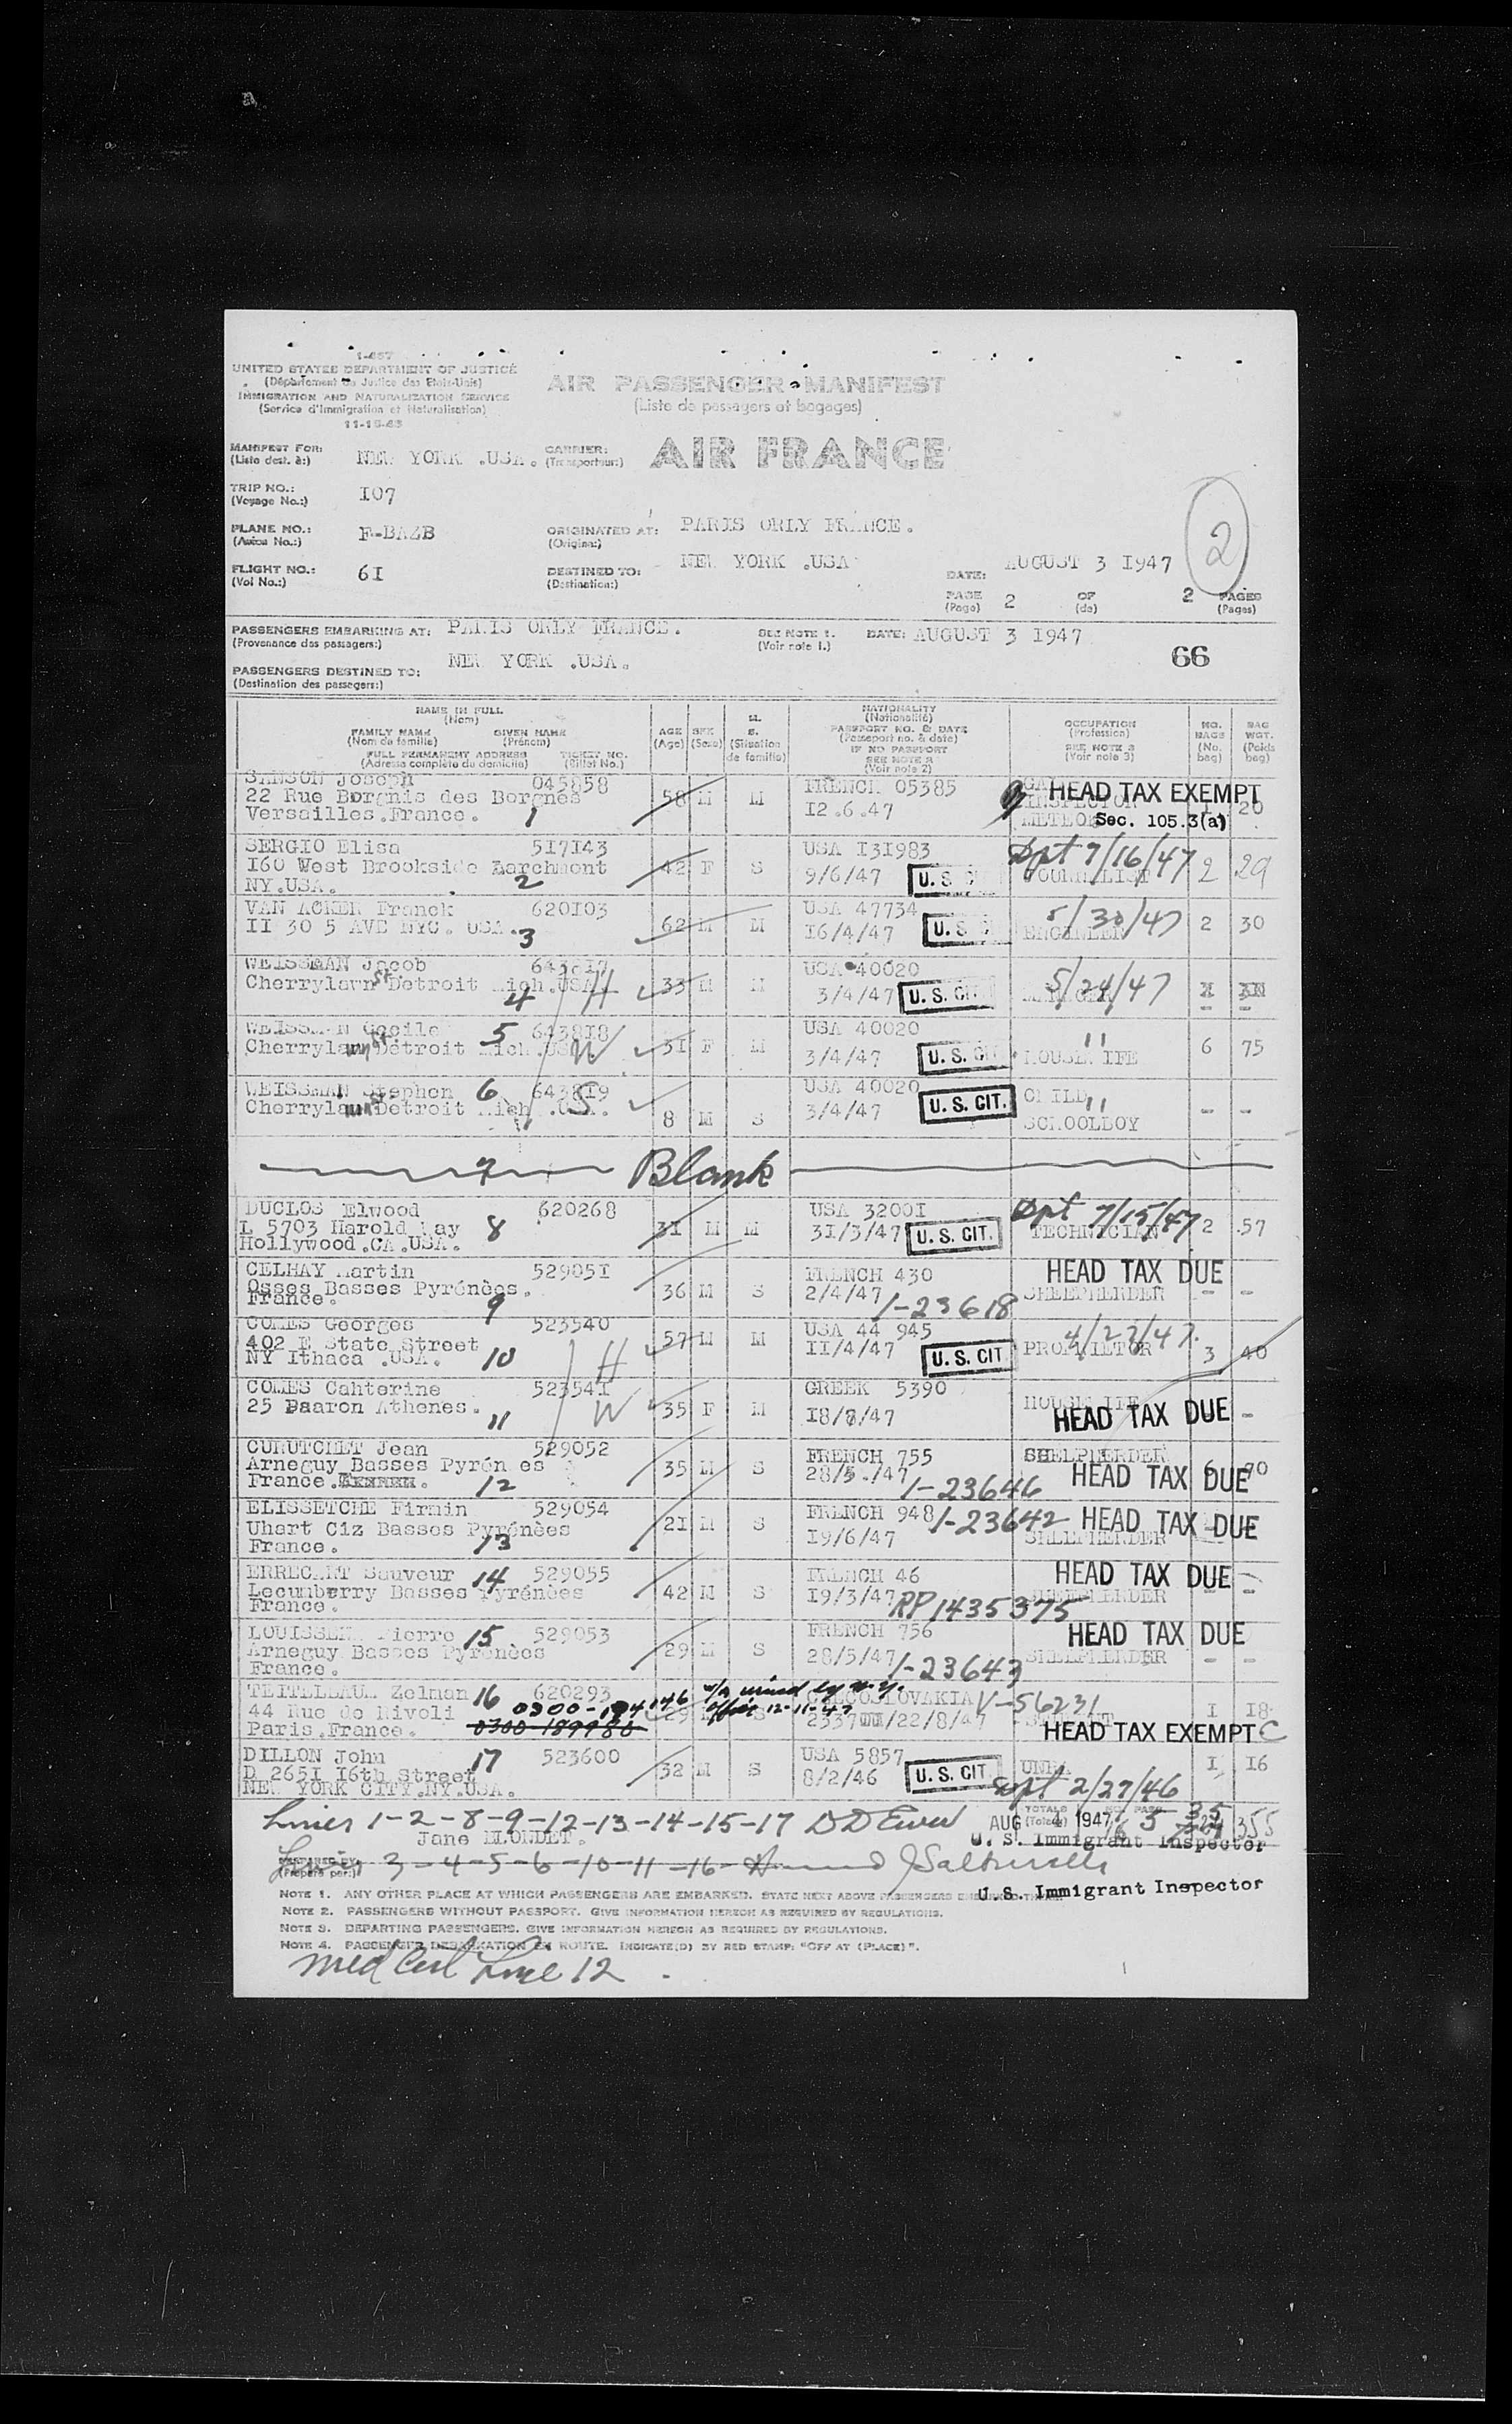 1-487
UNITED STATES DEPARTMENT OF JUSTICE
(Département de Justice des Etats-Unis)
IMMIGRATION AND NATURALIZATION SERVICE
(Service d'Immigration et Naturalisation)
11-15-43
AIR PASSENGER MANIFEST
(Liste de passagers et bagages)
MANIFEST FOR: NEW YORK .USA. CARRIER: AIR FRANCE
(Liste dest. à:) (Transporteur:)
TRIP NO.: I07
(Voyage No.:)
PLANE NO.: F-BAZB ORIGINATED AT: PARIS ORLY FRANCE. 2
(Avion No.:) (Origine:)
FLIGHT NO.: 6I DESTINED TO: NEW YORK .USA DATE: AUGUST 3 I947
(Vol No.:) (Destination:)
PAGE 2 OF 2 PAGES
(Page) (de) (Pages)
PASSENGERS EMBARKING AT: PARIS ORLY FRANCE. SEE NOTE 1. DATE: AUGUST 3 I947
(Provenance des passagers:) (Voir note 1.)
66
PASSENGERS DESTINED TO: NEW YORK .USA.
(Destination des passagers:)
NAME IN FULL
(Nom)
FAMILY NAME GIVEN NAME
(Nom de famille) (Prénom)
FULL PERMANENT ADDRESS TICKET NO.
(Adresse complète du domicile) (Billet No.)
AGE
(Age)
SEX
(Sexe)
M.
S.
(Situation de famille)
NATIONALITY
(Nationalité)
PASSPORT NO. & DATE
(Passeport no. & date)
IF NO PASSPORT
SEE NOTE 2
(Voir note 2)
OCCUPATION
(Profession)
SEE NOTE 3
(Voir note 3)
NO. BAGS
(No. bag)
BAG WGT.
(Poids bag)
SANSON Joseph 045858 58 M M FRENCH 05385 HEAD TAX EXEMPT 20
22 Rue Borgnis des Borgnes I2.6.47
Versailles.France. 1 METEO Sec. 105.3(a)
SERGIO Elisa 517143 42 F S USA I31983 Dpt 7/16/47 2 29
I60 West Brookside Larchmont 9/6/47 U.S. JOURNALIST
NY.USA. 2
VAN ACKER Franck 620I03 62 M M USA 47734 5/30/47 2 30
II 30 5 AVE NYC. USA. 3 I6/4/47 U.S. ENGINEER
WEISSMAN Jacob 643817 33 M M USA 40020 5/24/47
Cherrylawn St Detroit Mich.USA 4 H 3/4/47 U.S. CIT
WEISSMAN Cecile 5 643818 31 F M USA 40020 " 6 75
Cherrylawn St Detroit Mich.USA W 3/4/47 U.S. CIT HOUSEWIFE
WEISSMAN Stephen 6 643819 8 M S USA 40020 CHILD " - -
Cherrylawn St Detroit Mich .USA. S 3/4/47 U.S. CIT. SCHOOLBOY
7 Blank
DUCLOS Elwood 620268 3I M M USA 3200I Dpt 7/15/47 2 57
L 5703 Harold Way 8 3I/3/47 U.S. CIT. TECHNICIAN
Hollywood.CA.USA.
CELHAY Martin 52905I 36 M S FRENCH 430 HEAD TAX DUE
Osses Basses Pyrénèes. 2/4/47 1-23618 SHEEPHERDER - -
France. 9
COMES Georges 523540 57 M M USA 44 945 4/23/47
402 E State Street H II/4/47 U.S. CIT PROPRIETOR 3 40
NY Ithaca .USA. 10
COMES Cahterine 52354I 35 F M GREEK 5390 HOUSEWIFE
25 Daaron Athenes. 11 W I8/7/47 HEAD TAX DUE -
CURUTCHET Jean 529052 35 M S FRENCH 755 SHEEPHERDER
Arneguy Basses Pyrén es 28/5./47 1-23646 HEAD TAX DUE 6 90
France. 12
ELISSETCHE Firmin 529054 2I M S FRENCH 948 1-23642 HEAD TAX DUE
Uhart Ciz Basses Pyrénèes I9/6/47 SHEEPHERDER
France. 13
ERRECART Sauveur 14 529055 42 M S FRENCH 46 HEAD TAX DUE -
Lecumberry Basses Pyrénèes I9/3/47 RP1435375 SHEEPHERDER
France.
LOUISSENA Pierre 15 529053 29 M S FRENCH 756 HEAD TAX DUE
Arneguy Basses Pyrénèes 28/5/47 1-23643 SHEEPHERDER - -
France.
TEITELBAUM Zelman 16 620293 29 S CZECOSLOVAKIA V-56231 I 18
44 Rue de Rivoli 0300-194146 office 12-11-47 /22/8/47
Paris.France. 0300-189980 HEAD TAX EXEMPT C
DILLON John 17 523600 32 M S USA 5857 UNRA I I6
D 265I I6th Street 8/2/46 U.S. CIT. Dpt 2/27/46
NEW YORK CITY.NY.USA.
Lines 1-2-8-9-12-13-14-15-17 AUG 4 1947 TOTALS 35 355
Jane BLONDET. U. S. Immigrant Inspector
PREPARED BY:
(Préparé par:)
Lines 3-4-5-6-10-11-16-
U.S. Immigrant Inspector
NOTE 1. ANY OTHER PLACE AT WHICH PASSENGERS ARE EMBARKED. STATE NEXT ABOVE PASSENGERS
NOTE 2. PASSENGERS WITHOUT PASSPORT. GIVE INFORMATION HEREON AS REQUIRED BY REGULATIONS.
NOTE 3. DEPARTING PASSENGERS. GIVE INFORMATION HEREON AS REQUIRED BY REGULATIONS.
NOTE 4. PASSENGER DEBARKATION EN ROUTE. INDICATE(D) BY RED STAMP: "OFF AT (PLACE)".
Med Cert Line 12